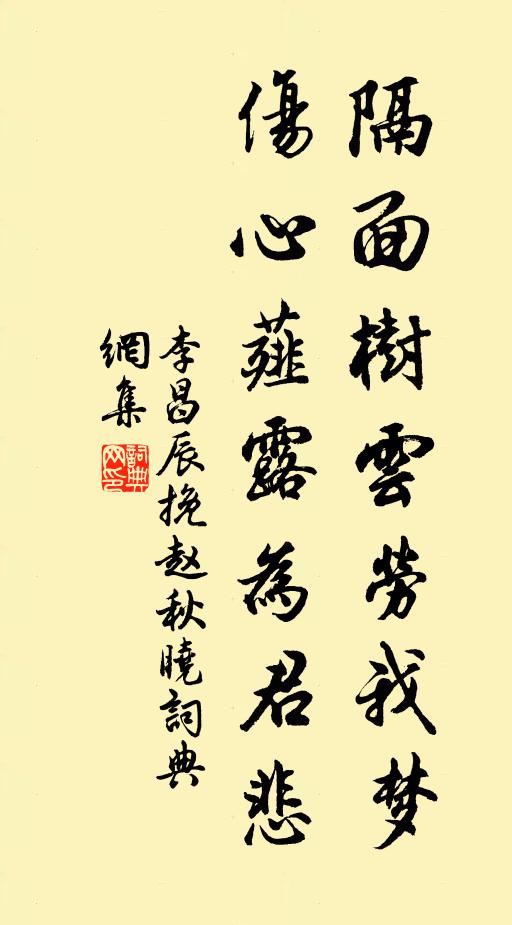 隔面樹雲勞我梦
傷心薤露為君悲
李昌辰挽赵秋曉詞典
網集
詞典
网印